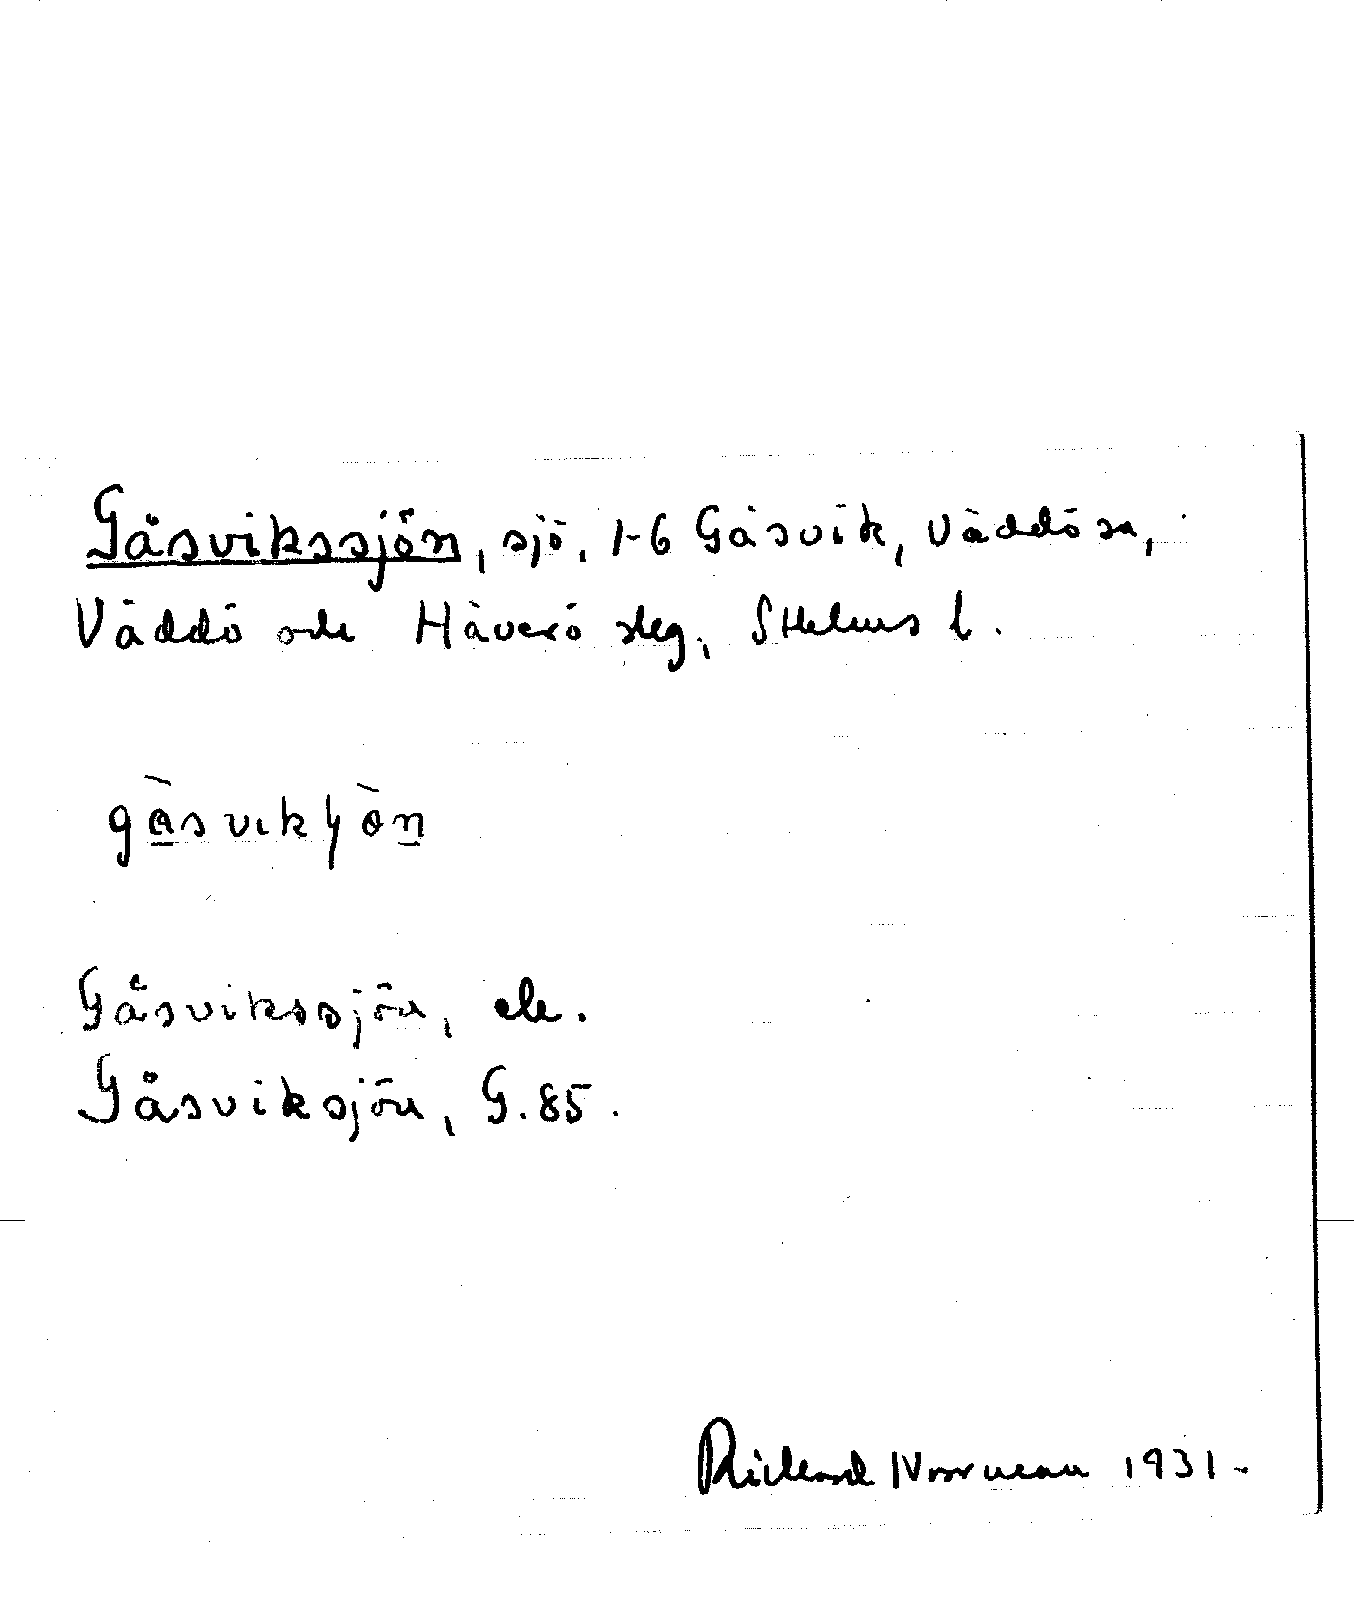 Gåsvikssjön, sjö, 1-6 Gåsvik, Väddö sn,
Väddö och Häverö skg, Sthlms l.
gåsvikʃön
Gåsvikssjön, ek.
Gåsviksjön, G. 85.
Rickard Norrman 1931.